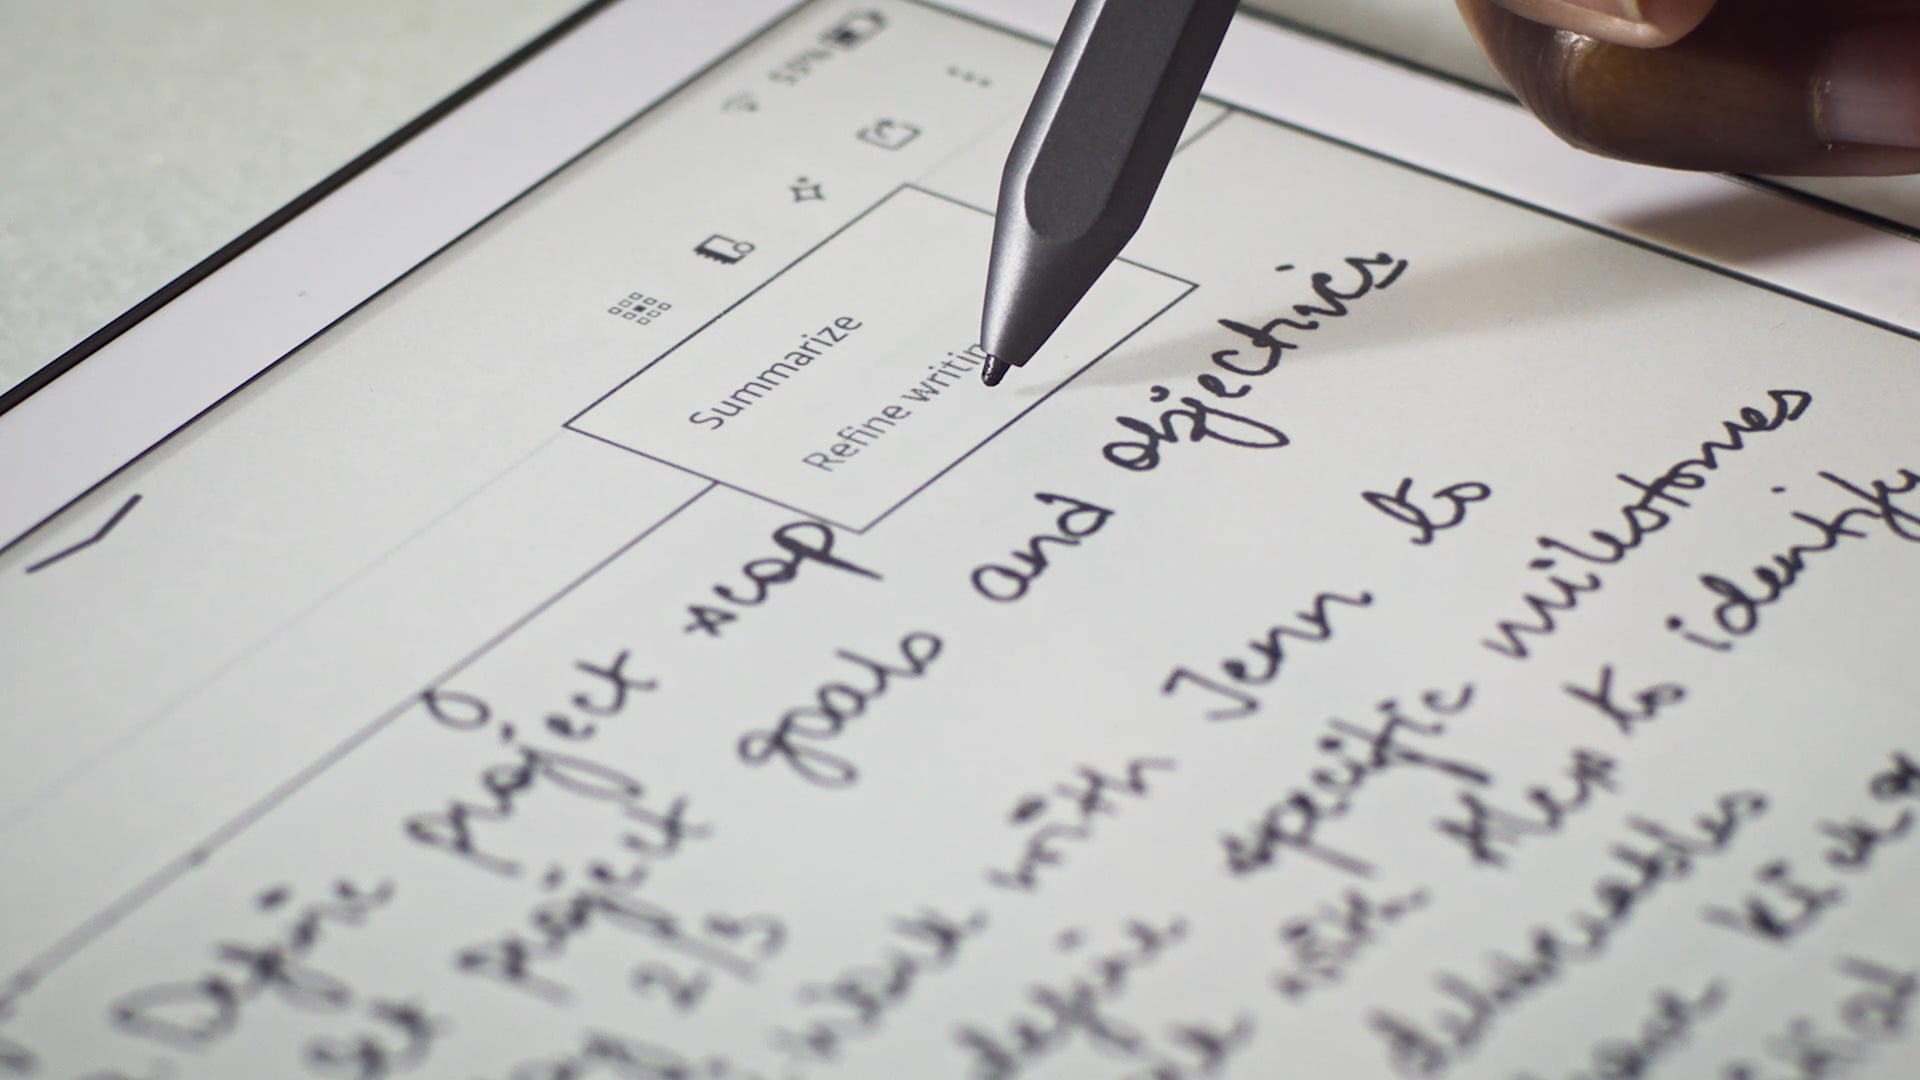 53%
Summarize
Refine writin
Define project scop
Set project goals and objectives
2/3
work with Jenn to
define specific milestones
with Alex to identify
deliverables